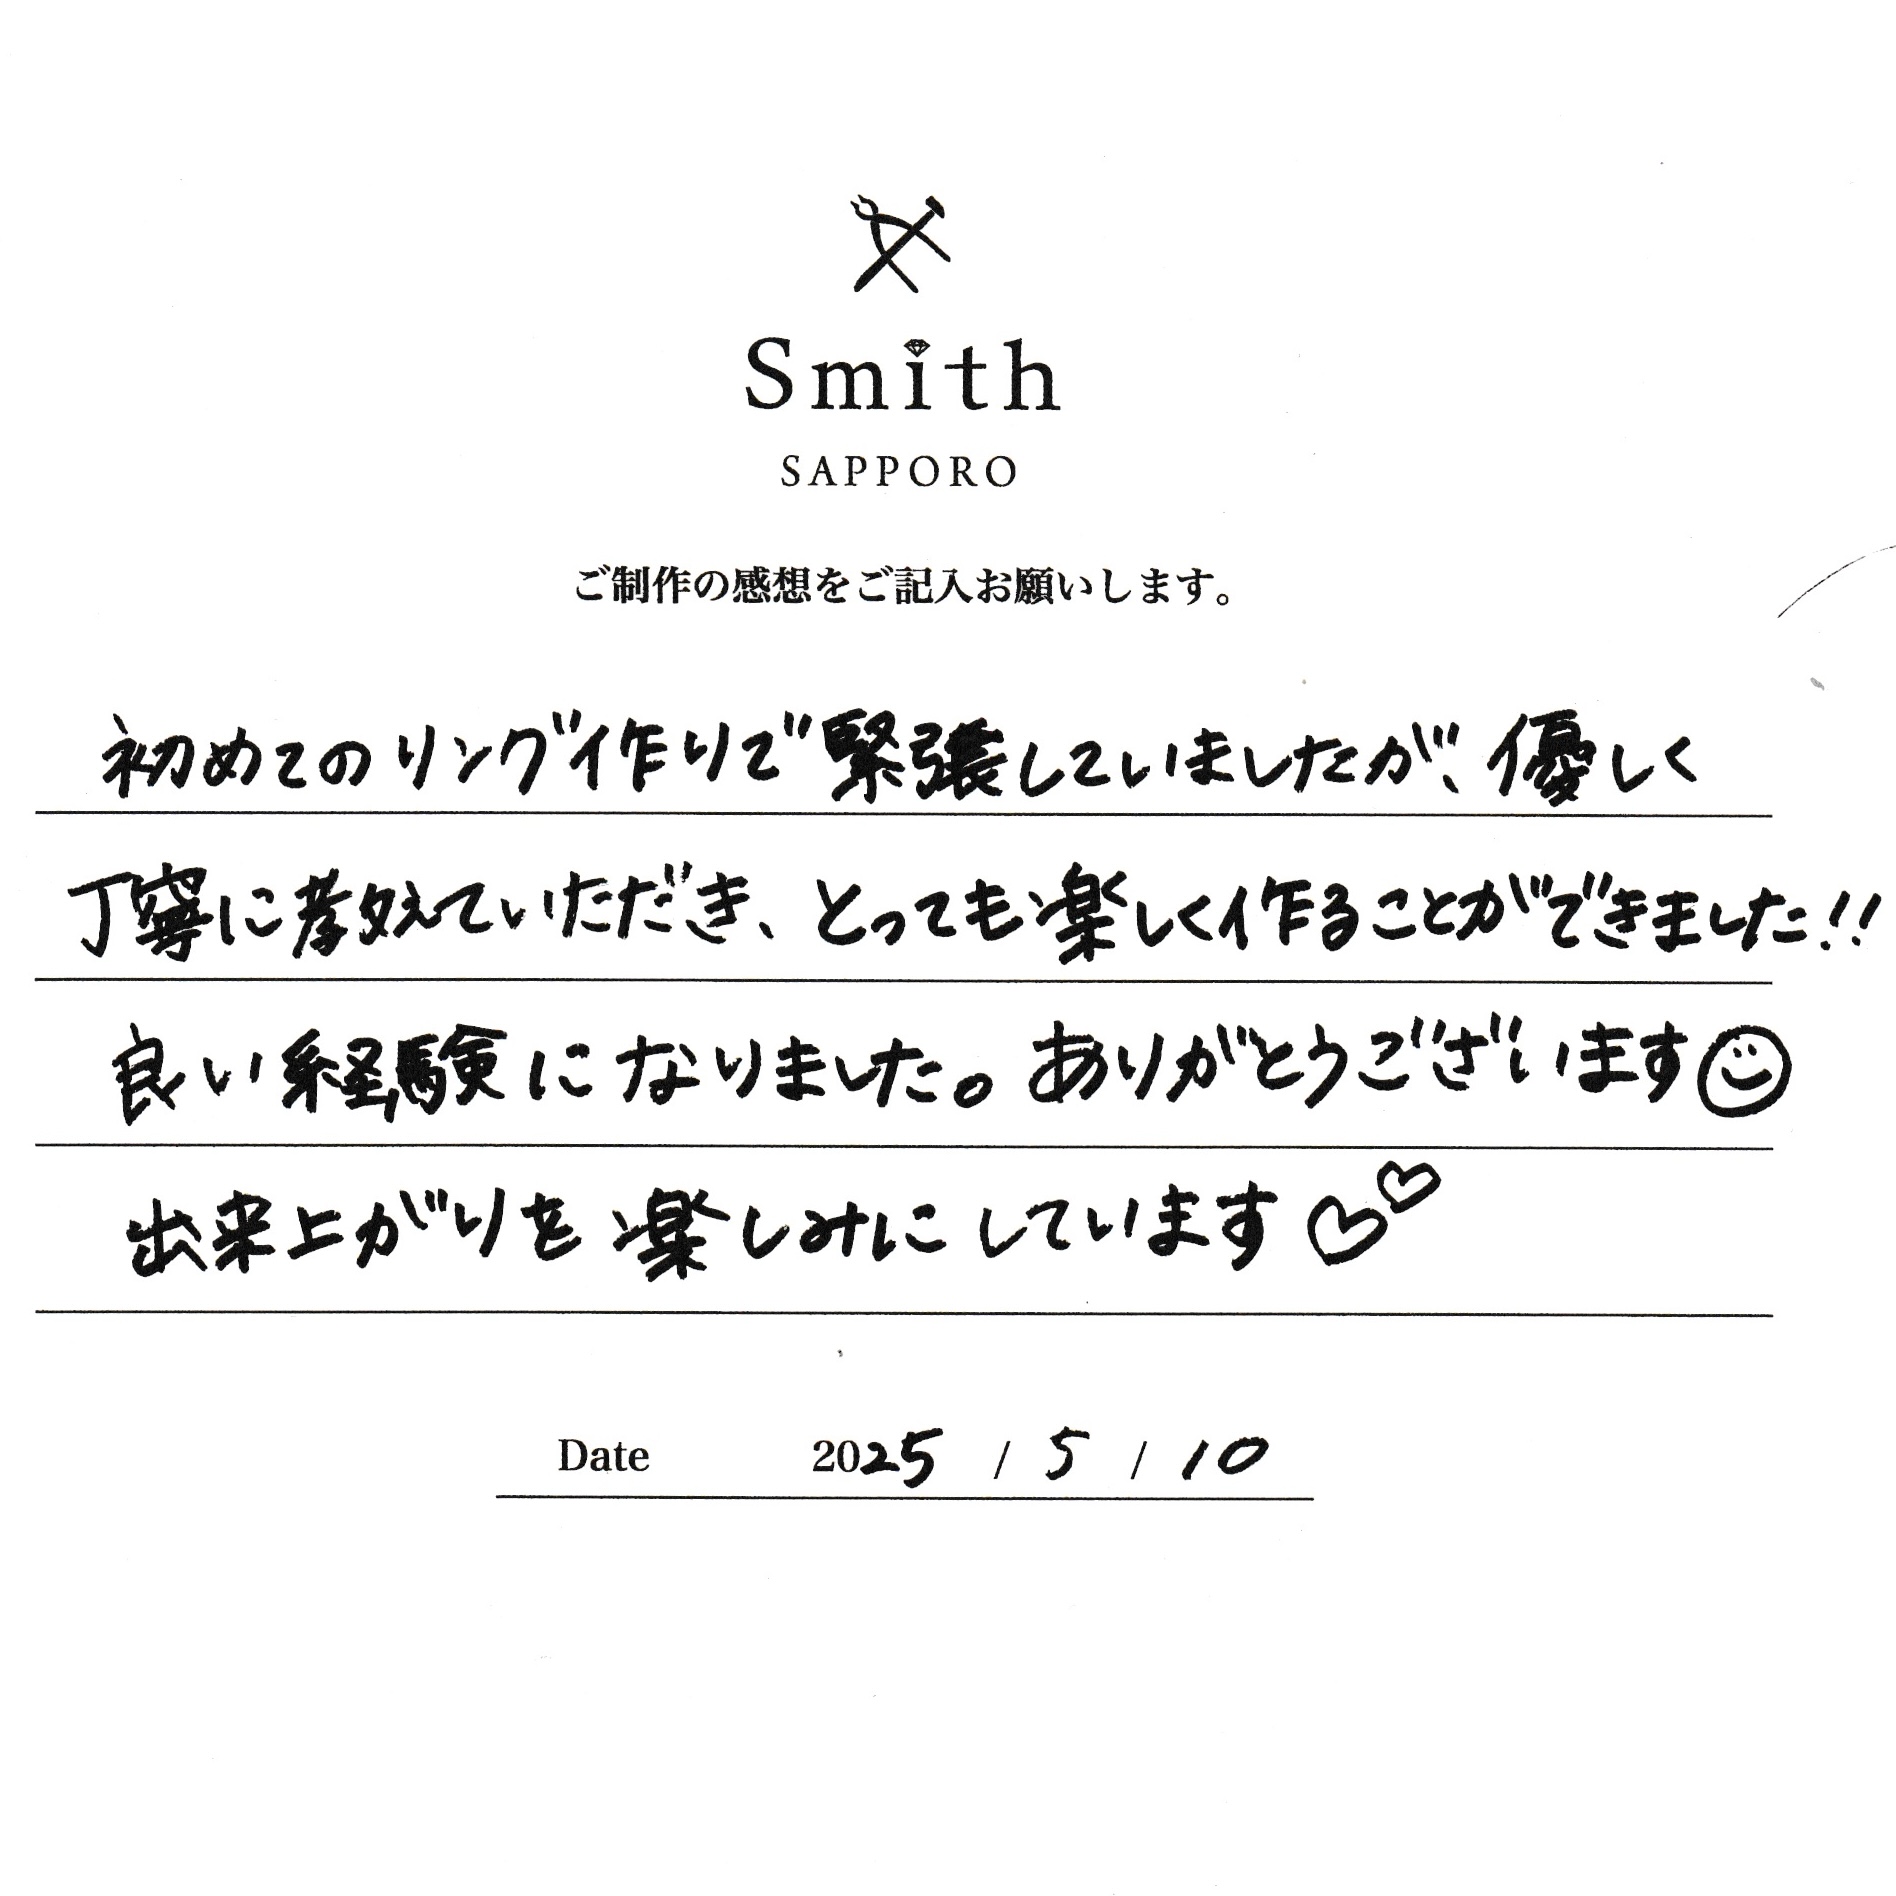 Smith
SAPPORO
ご制作の感想をご記入お願いします。
初めてのリング作りで緊張していましたが、優しく
丁寧に教えていただき、とっても楽しく作ることができました!!
良い経験になりました。ありがとうございます
出来上がりを楽しみにしています♡♡
Date 2025 / 5 / 10